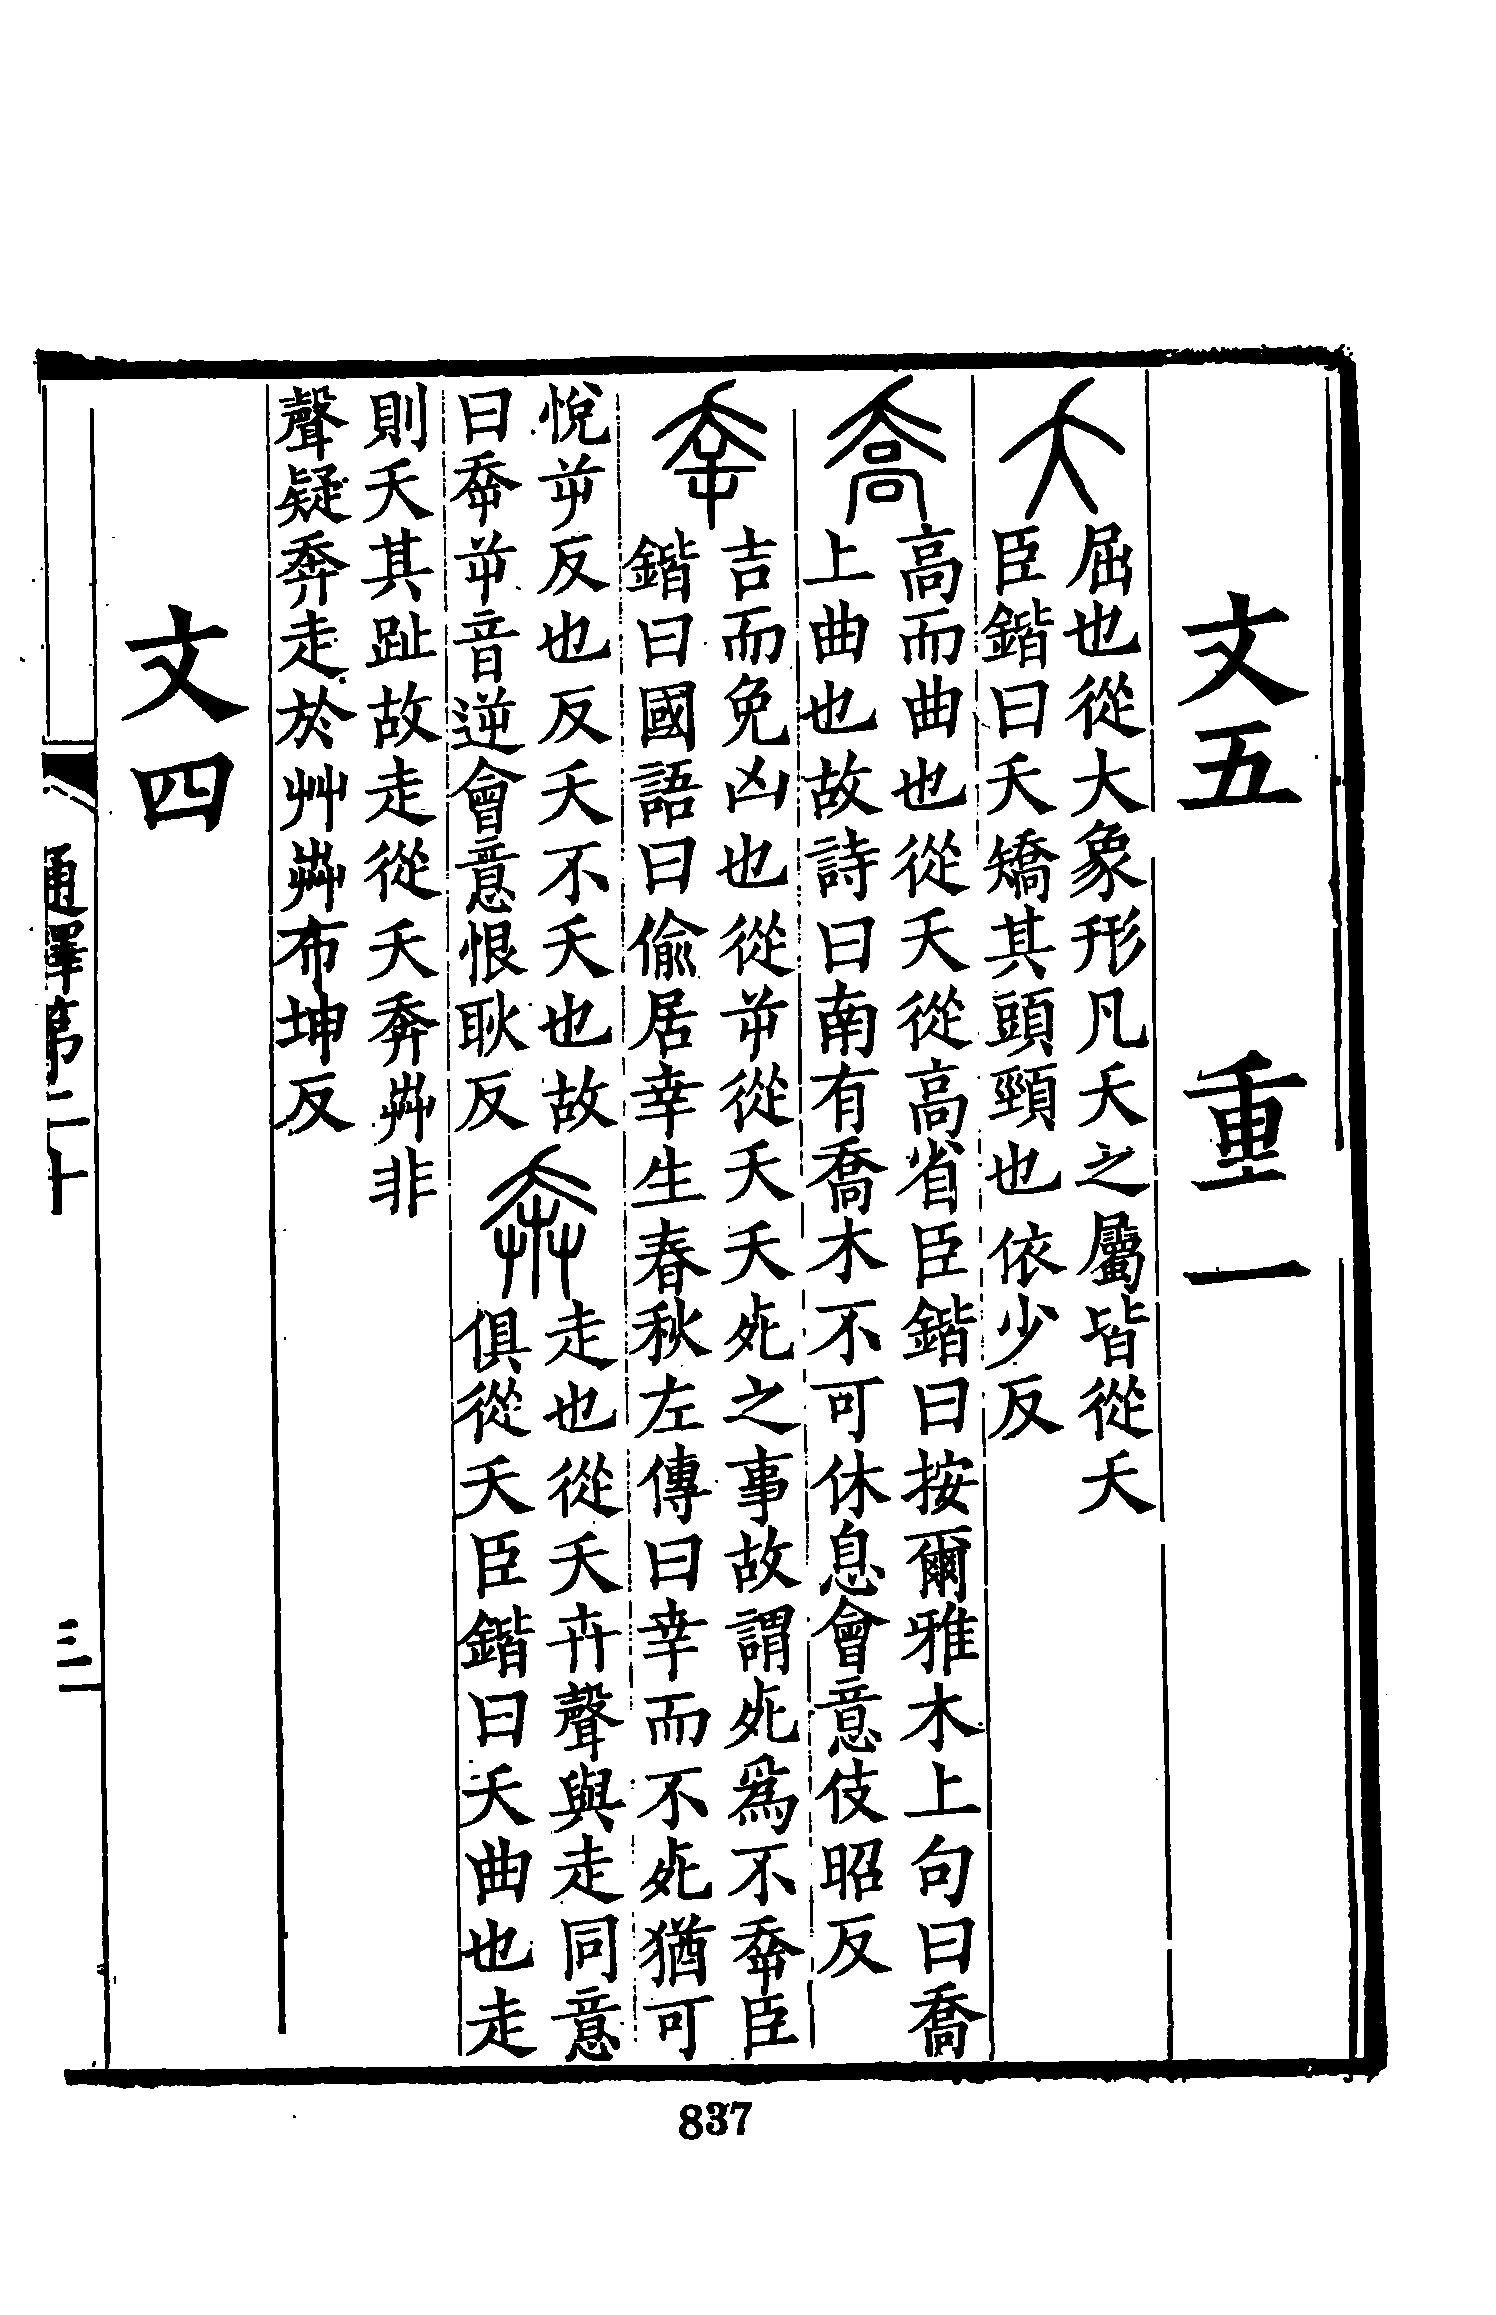 文五 重一
夭 屈也從大象形凡夭之屬皆從夭
臣鍇曰夭矯其頭頸也依少反
喬 高而曲也從夭從高省臣鍇曰按爾雅木上句曰喬
上曲也故詩曰南有喬木不可休息會意伎昭反
㚔 吉而免凶也從屰從夭夭死之事故謂死爲不㚔臣
鍇曰國語曰偷居幸生春秋左傳曰幸而不死猶可
悅屰反也反夭不夭也故
曰㚔屰音逆會意恨耿反
奔 走也從夭卉聲與走同意
俱從夭臣鍇曰夭曲也走
則夭其趾故走從夭奔芔非
聲疑奔走於艸茻布坤反
文四
通釋第二十
三
837